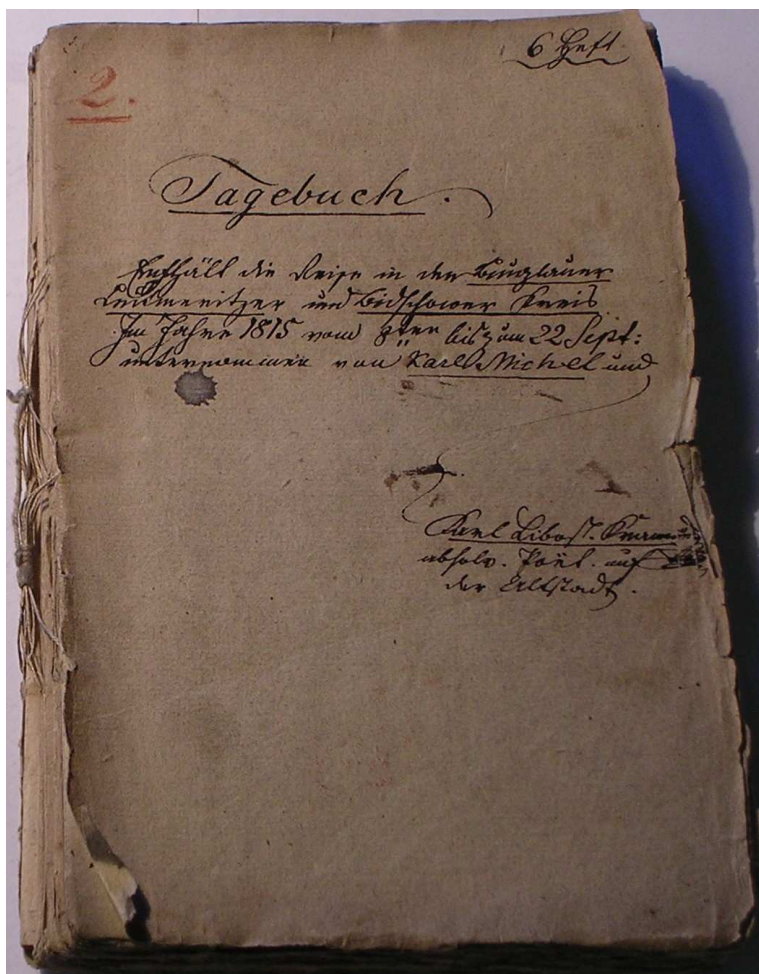 6 Heft.
2.
Tagebuch.
Enthält die Reise in den Bunzlauer
Leitmeritzer und Bidschower Kreis
Im Jahre 1815 vom 8ten bis zum 22 Sept:
unternommen von Karl Michel und
Karl
absolv. Poët. auf
der Altstadt.